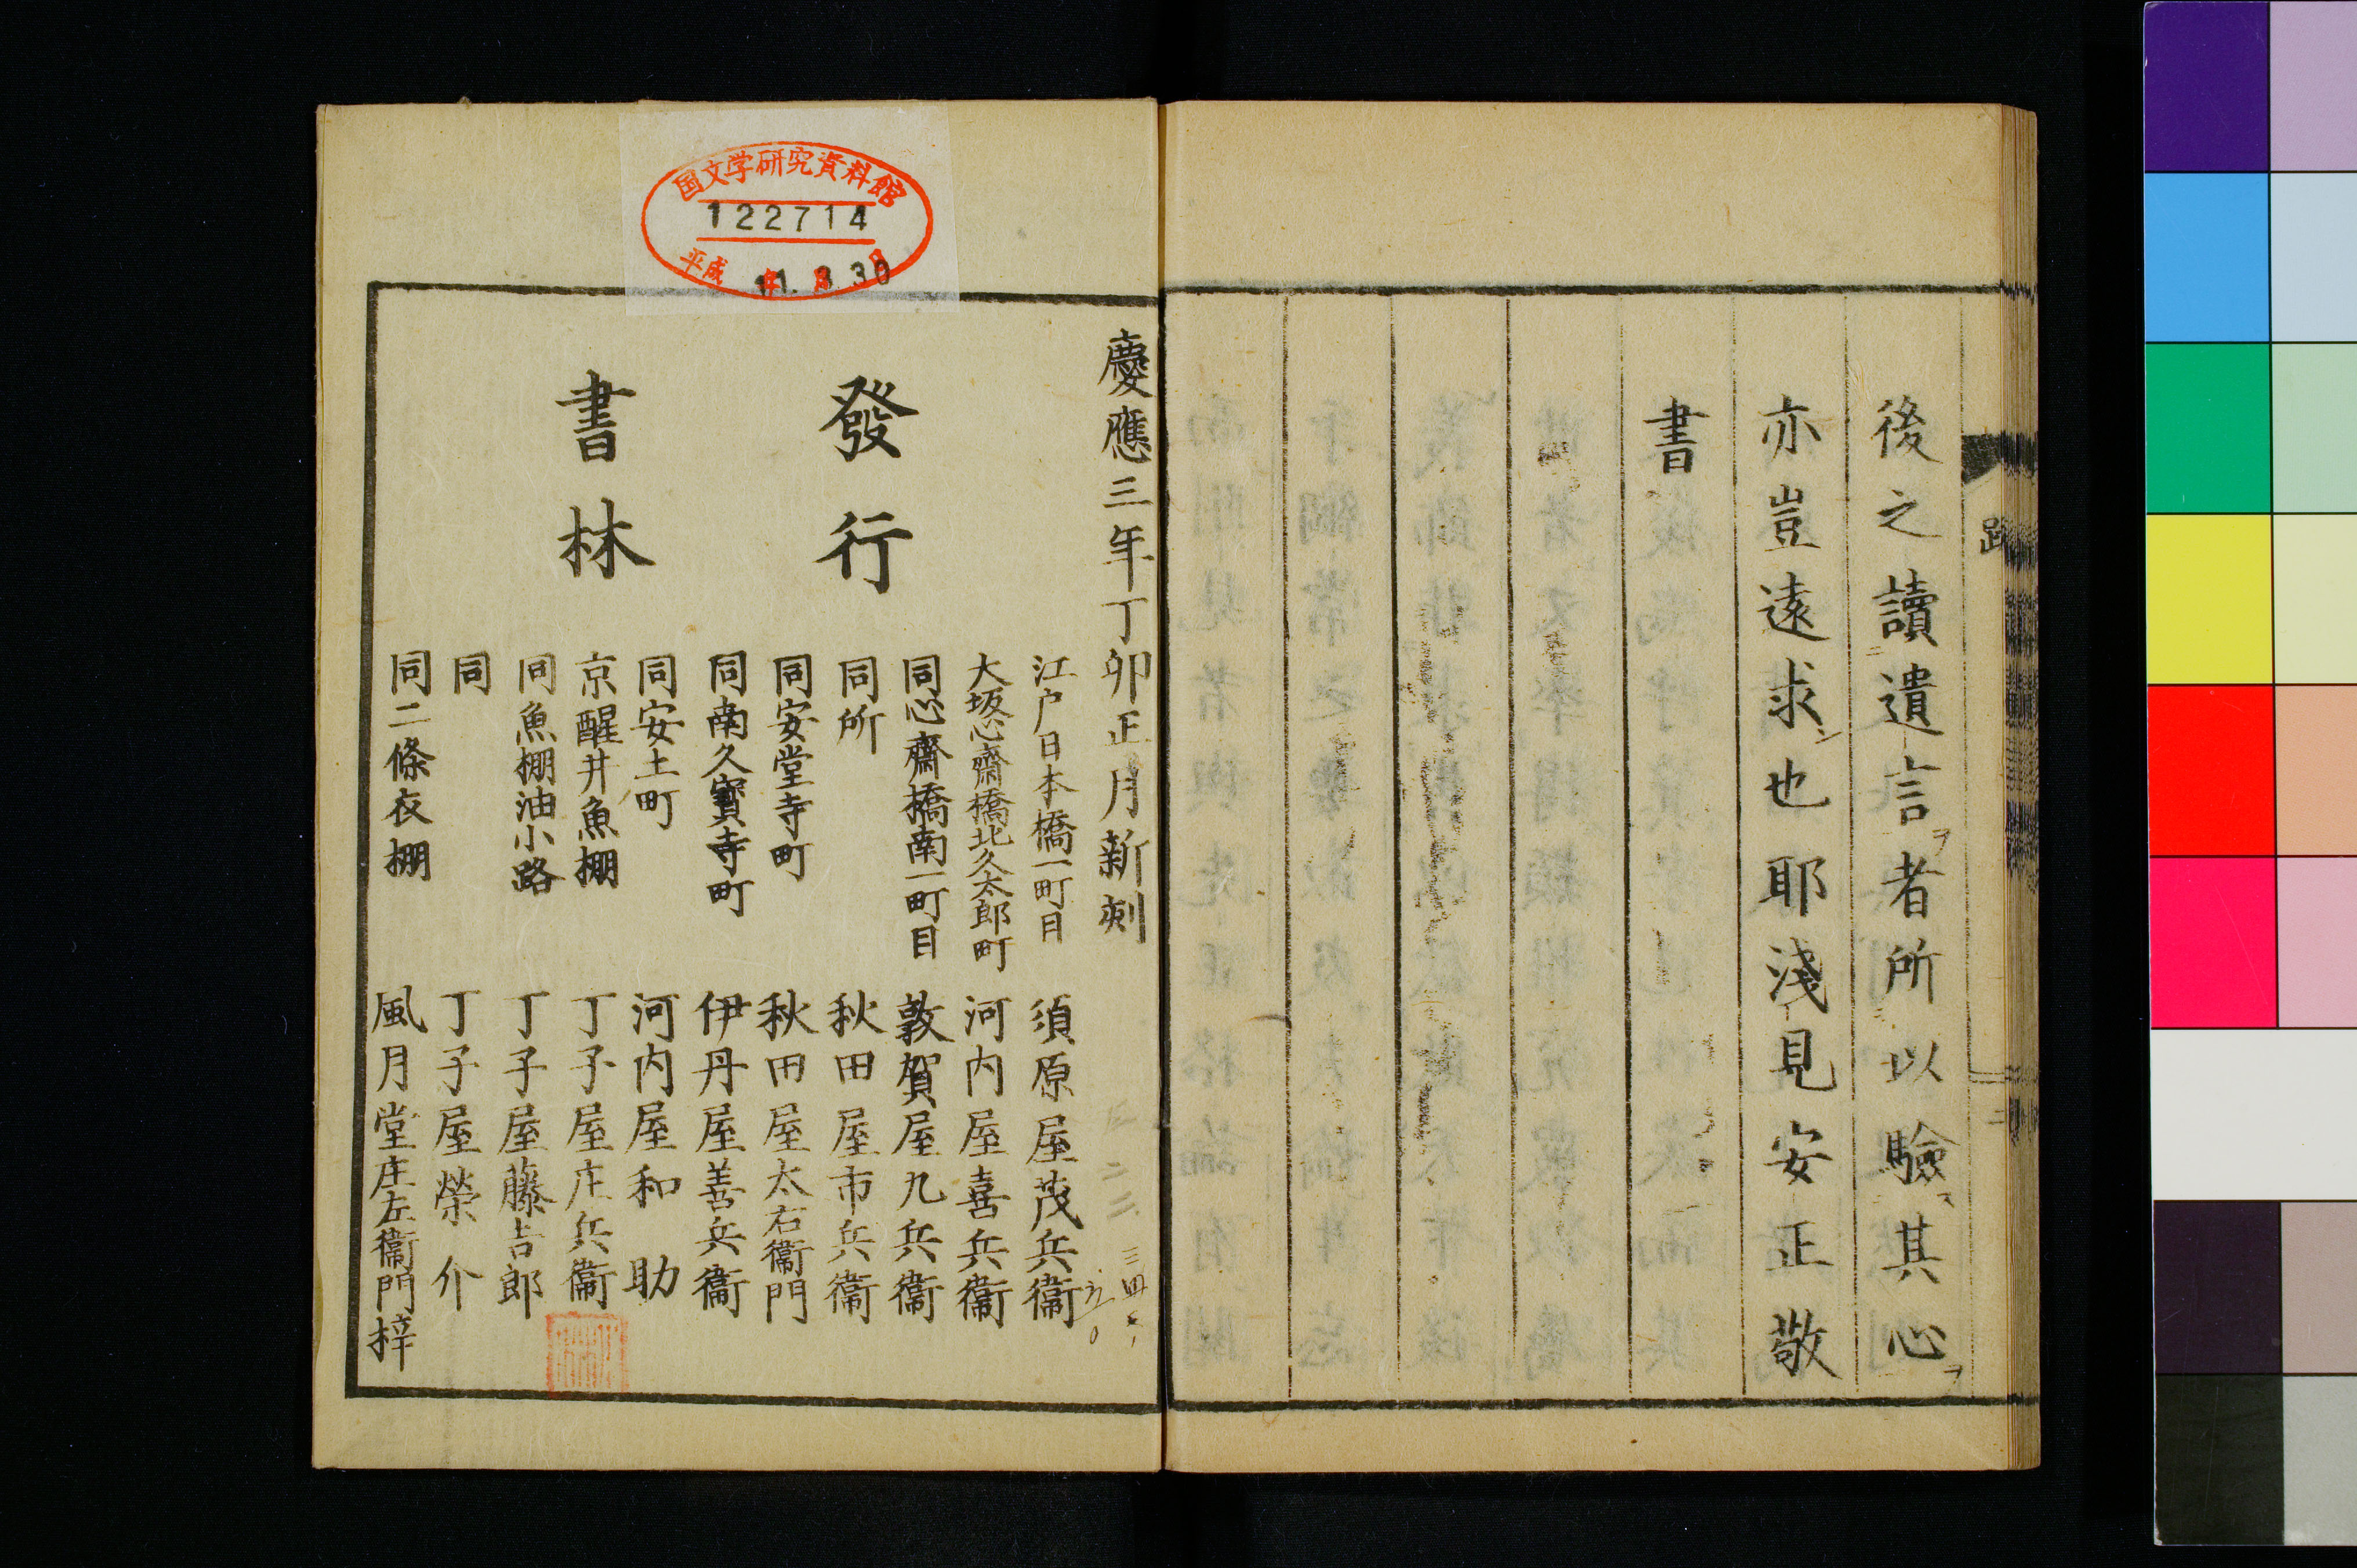 後之讀遺言者所以驗其心
亦豈遠求也耶淺見安正敬
書
跋
二
国文学研究資料館
122714
平成 年 月 日
11. 3. 30
慶應三年丁卯正月新刻
發行
書林
江戸日本橋一町目 須原屋茂兵衞
大坂心齋橋北久太郎町 河内屋喜兵衞
同心齋橋南一町目 敦賀屋九兵衞
同所 秋田屋市兵衞
同安堂寺町 秋田屋太右衞門
同南久寶寺町 伊丹屋善兵衞
同安土町 河内屋和助
京醒井魚棚 丁子屋庄兵衞
同魚棚油小路 丁子屋藤吉郎
同 丁子屋榮介
同二條衣棚 風月堂庄左衞門梓